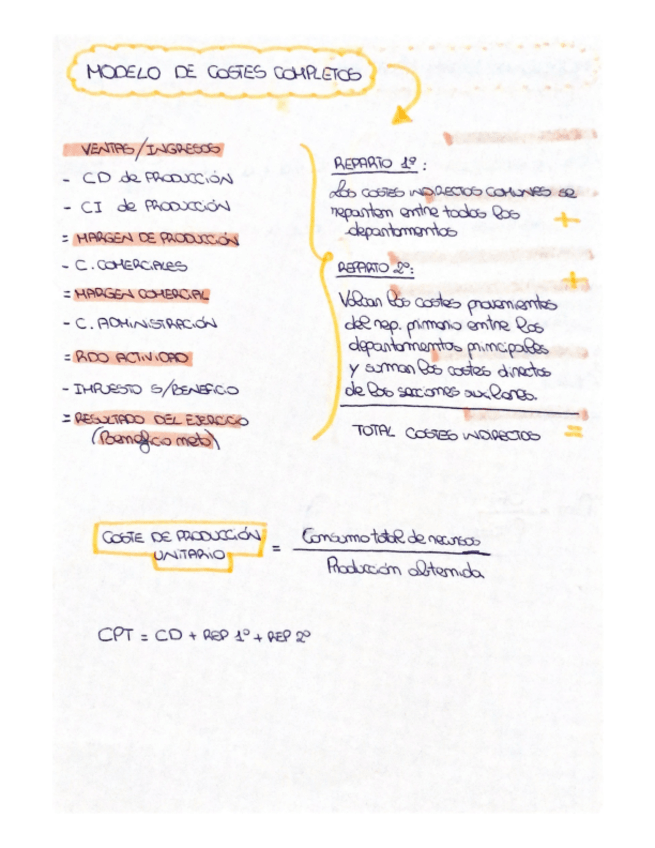 MODELO DE COSTES COMPLETOS
VENTAS/INGRESOS
- CD de PRODUCCIÓN
- CI de PRODUCCIÓN
= MARGEN DE PRODUCCIÓN
- C. COMERCIALES
= MARGEN COMERCIAL
- C. ADMINISTRACIÓN
= RDO ACTIVIDAD
- IMPUESTO S/BENEFICIO
= RESULTADO DEL EJERCICIO
(Beneficio neto)
REPARTO 1º:
Los COSTES INDIRECTOS COMUNES se
reparten entre todos los
departamentos
+
REPARTO 2º:
+
Volcan los costes provenientes
del rep. primario entre los
departamentos principales
y suman los costes directos
de las secciones auxiliares.
TOTAL COSTES INDIRECTOS =
COSTE DE PRODUCCIÓN
UNITARIO
= Consumo total de recursos
Producción obtenida
CPT = CD + REP 1º + REP 2º